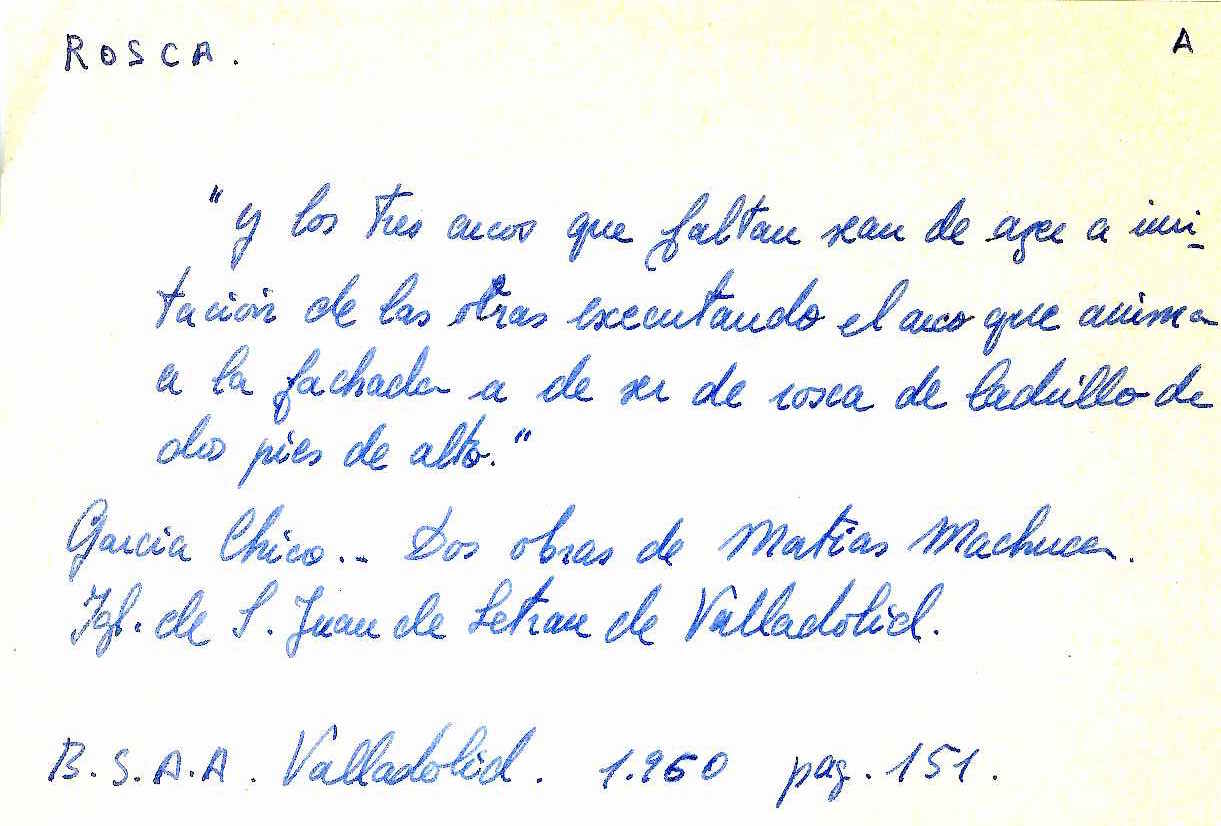 ROSCA. A
"y los tres arcos que faltan sean de açer a imi-
tación de las otras executando el arco que anima
a la fachada a de ser de rosca de ladrillo de
dos pies de alto."
Garcia Chico.- Dos obras de Matias Machuca.
Igl. de S. Juan de Letran de Valladolid.
B.S.A.A. Valladolid. 1.960 pag. 151.